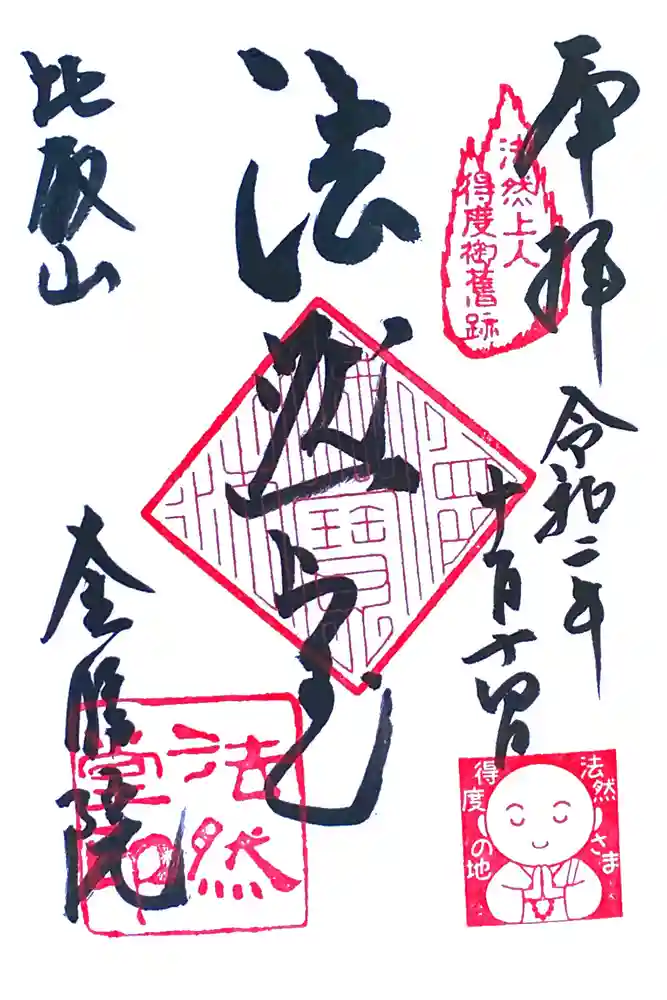 奉拝
法然上人
得度御舊跡
令和二年
十月十四日
法然上人
比叡山
法然
堂印
法然さま
得度の地